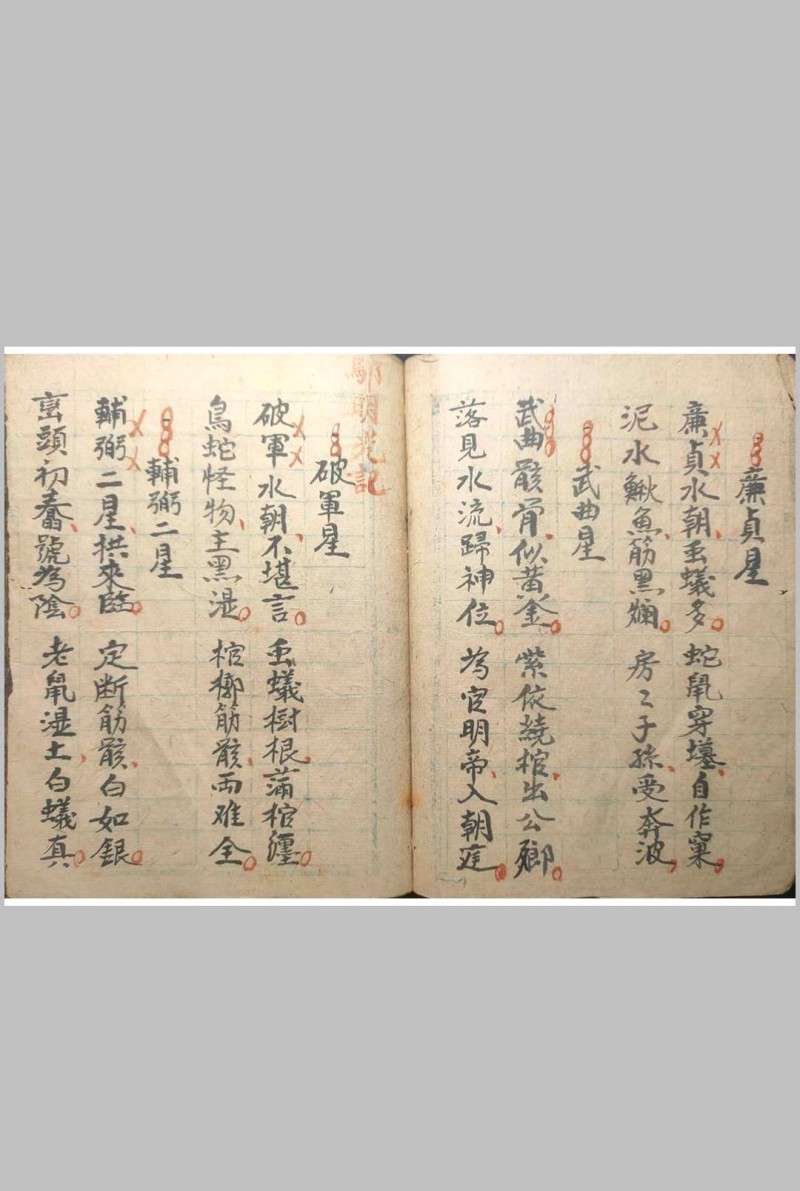 廉貞星
廉貞水朝䖝蟻多 蛇鼠穿墳自作窠
泥水鰍魚筋黑爛 房〻子孫受奔波
武曲星
武曲骸骨似黄金 紫依繞棺出公郷
落見水流歸神位 為官明帝入朝廷
明 記
破軍星
破軍水朝不堪言 䖝蟻樹根蒲棺纒
鳥蛇怪物主黑湿 棺槨筋骸両难全
輔弼二星
輔弼二星拱來臨 定断筋骸白如銀
巒頭初 號為陰 老鼠湿土白蟻真